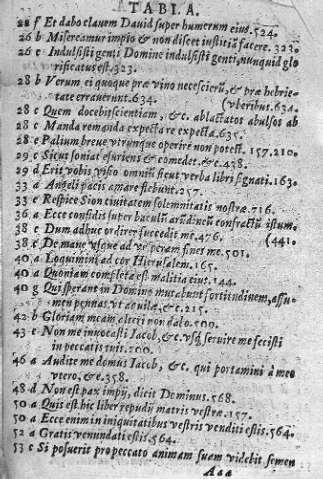 TABLA.
22 f Et dabo clavem David super humerum eius. 524.
26 b Misereamur impio & non discet iustitiã facere. 323.
26 e Indulsisti genti Domine indulsisti genti, nunquid glo
rificatus est. 323.
28 b Verum ei quoque præ vino nescierũt, & præ hebrie-
tate erraverunt. 634. (vberibus. 634.
28 c Quem docebit scientiam, &c. ablactatos abulsos ab
28 c Manda remanda expecta re expecta. 635.
28 e Palium breve utrunque operire non potest. 157. 210.
29 c Sicut somiat esuriens & comedet. &c. 438.
29 d Erit vobis visio omniũ sicut verba libri signati. 163.
33 a Angeli pacis amare flebunt. 257.
33 e Respice Sion civitatem solemnitatis nostræ. 716.
36 a Ecce confidis super baculũ arũdineũ confractũ istum.
38 c Dum adhuc ordirer succedit me. 476. (441.
38 c De mane usque ad vesperam finies me. 501.
40 a Loquimini ad cor Hierusalem. 165.
40 a Quoniam completa est malitia eius. 144.
40 g Qui sperant in Domino mutabunt fortitudinem, assu-
men pennas ut aquilæ, &c. 215.
42 b Gloriam meam alteri non dabo. 500.
43 e Non me invocasti Iacob, &c. usq; servire me fecisti
in peccatis tuis. 500.
46 a Audite me domus Iacob, &c. qui portamini à meo
utero, &c. 358.
48 d Non est pax impij, dicit Dominus. 568.
50 a Quis est hic liber repudij matris vestræ. 157.
50 a Ecce enim in iniquitatibus vestris venditi estis. 564.
52 a Gratis venundati estis. 564.
53 e Si posuerit pro peccato animam suam videbit semen
Aaa